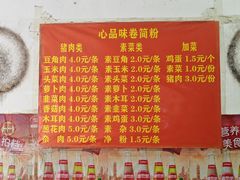 心品味卷筒粉
猪肉类 素菜类 加菜
豆角肉 4.0元/条 素豆角 2.0元/条 鸡蛋 1.5元/个
玉米肉 4.0元/条 素玉米 2.0元/条 猪肉 1.0元/份
头菜肉 4.0元/条 素头菜 2.0元/条 猪肉 3.0元/份
萝卜肉 4.0元/条 素萝卜 2.0元/条
韭菜肉 4.0元/条 素木耳 2.0元/条
香菇肉 4.0元/条 素韭菜 2.0元/条
木耳肉 4.0元/条 素香菇 3.0元/条
葱花肉 5.0元/条 素杂 3.0元/条
杂肉 5.0元/条 净粉 1.5元/条
营养
美食